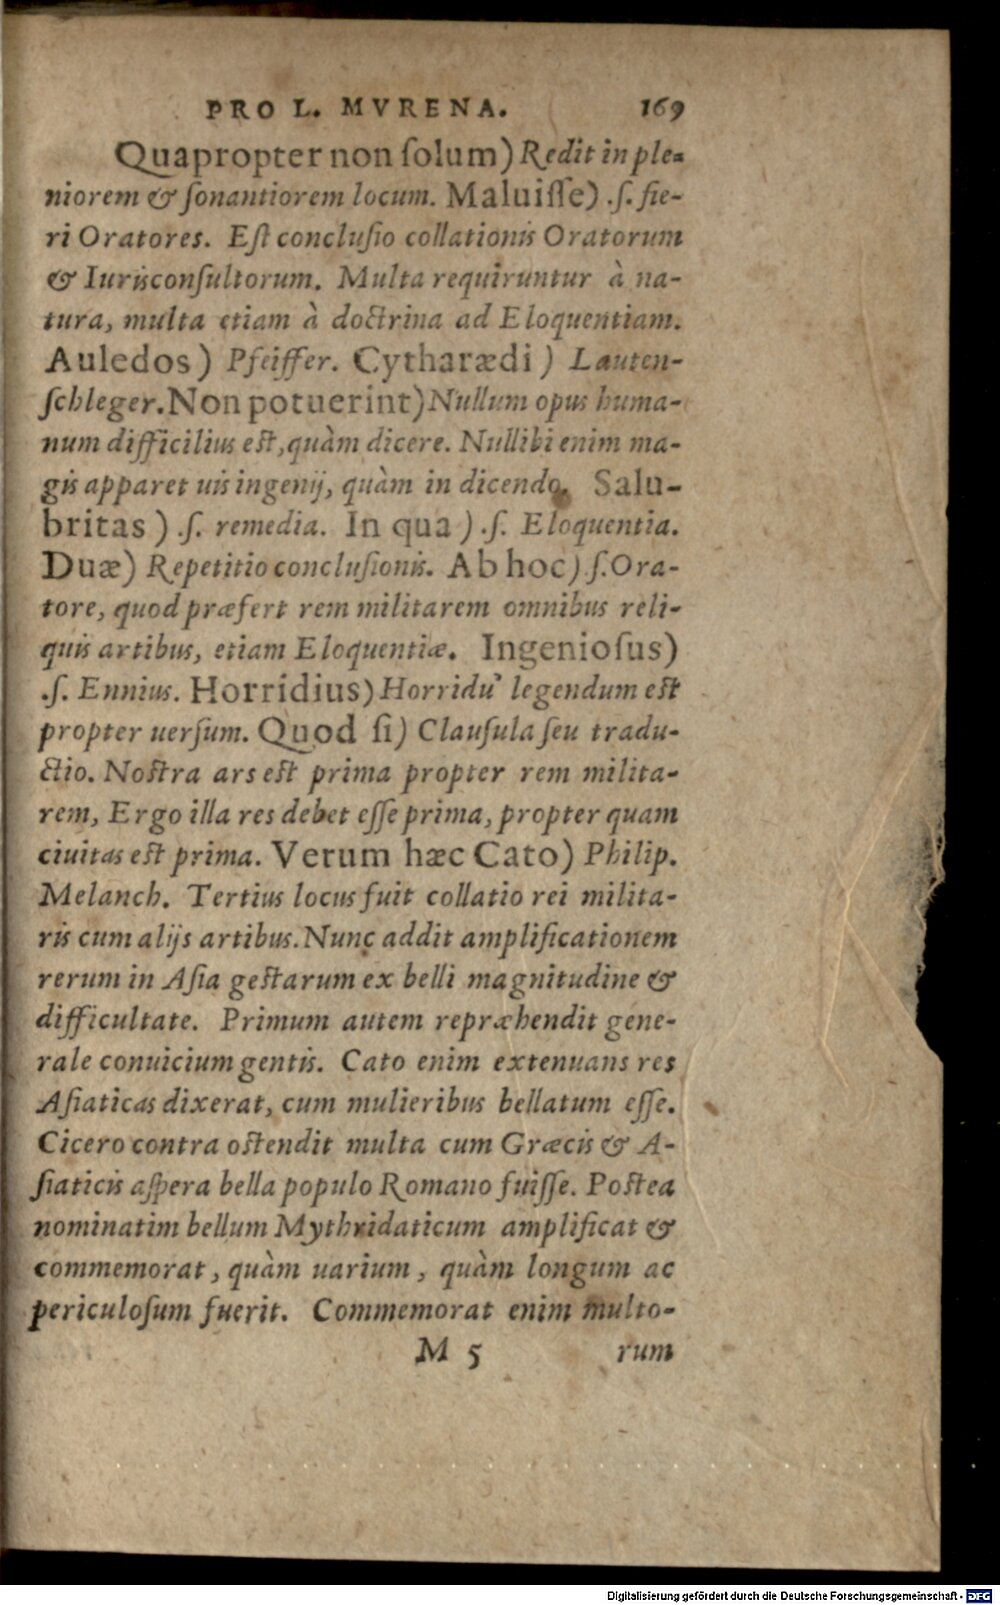 PRO L. MVRENA. 169
Quapropter non ſolum) Redit in ple-
niorem & ſonantiorem locum. Maluiſſe) .ſ. fie-
ri Oratores. Eſt concluſio collationis Oratorum
& Iurisconſultorum. Multa requiruntur à na-
tura, multa etiam à doctrina ad Eloquentiam.
Auledos) Pfeiffer. Cytharædi) Lauten-
ſchleger. Non potuerint) Nullum opus huma-
num difficilius eſt, quàm dicere. Nullibi enim ma-
gis apparet uis ingenij, quàm in dicendo. Salu-
britas) .ſ. remedia. In qua) .ſ. Eloquentia.
Duæ) Repetitio concluſionis. Ab hoc) ſ. Ora-
tore, quod præfert rem militarem omnibus reli-
quis artibus, etiam Eloquentiæ. Ingenioſus)
.ſ. Ennius. Horridius) Horridu' legendum eſt
propter uerſum. Quod ſi) Clauſula ſeu tradu-
ctio. Noſtra ars eſt prima propter rem milita-
rem, Ergo illa res debet eſſe prima, propter quam
ciuitas eſt prima. Verum hæc Cato) Philip.
Melanch. Tertius locus fuit collatio rei milita-
ris cum alijs artibus. Nunc addit amplificationem
rerum in Aſia geſtarum ex belli magnitudine &
difficultate. Primum autem repræhendit gene-
rale conuicium gentis. Cato enim extenuans res
Aſiaticas dixerat, cum mulieribus bellatum eſſe.
Cicero contra oſtendit multa cum Græcis & A-
ſiaticis aſpera bella populo Romano fuiſſe. Poſtea
nominatim bellum Mythridaticum amplificat &
commemorat, quàm uarium, quàm longum ac
periculoſum fuerit. Commemorat enim multo-
M 5 rum
Digitalisierung gefördert durch die Deutsche Forschungsgemeinschaft - DFG